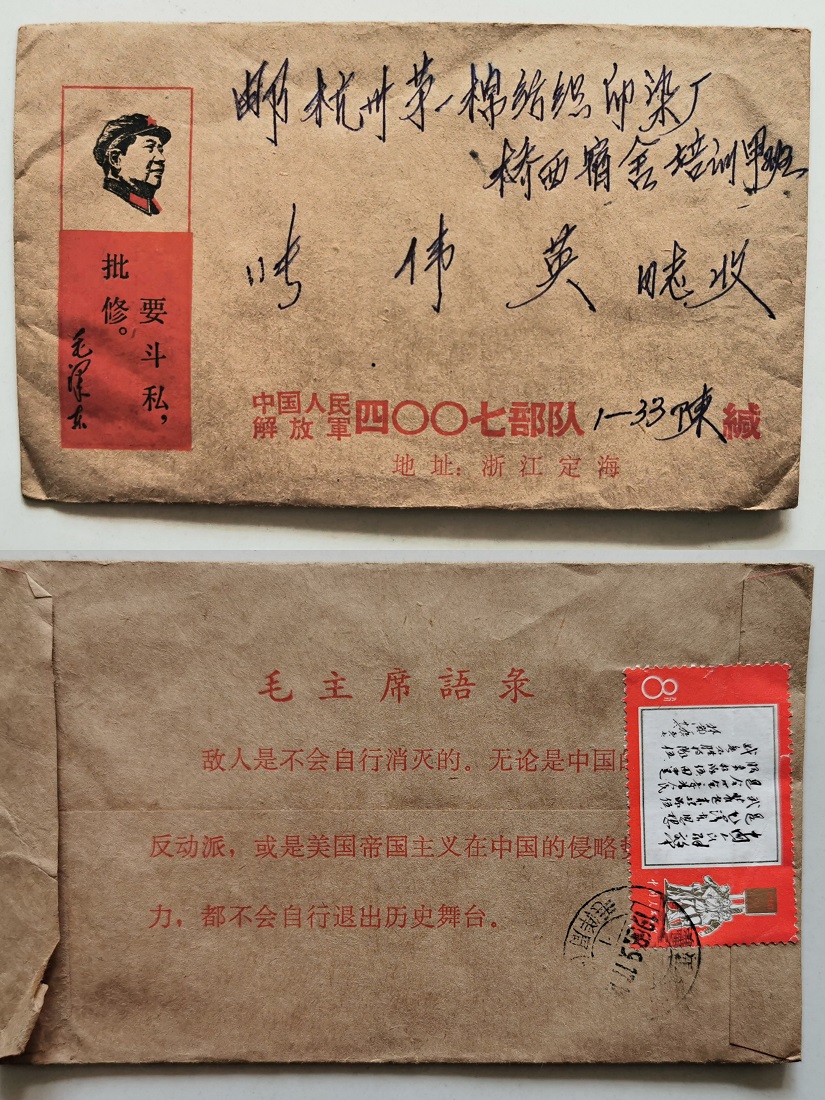 邮杭州第一棉纺织印染厂
桥西宿舍培训甲班
张伟英同志收
要斗私,
批修。
毛泽东
中国人民
解放軍
四〇〇七部队 1-33陳緘
地址:浙江定海
毛主席語彔
敌人是不会自行消灭的。无论是中国的
反动派,或是美国帝国主义在中国的侵略势
力,都不会自行退出历史舞台。
8